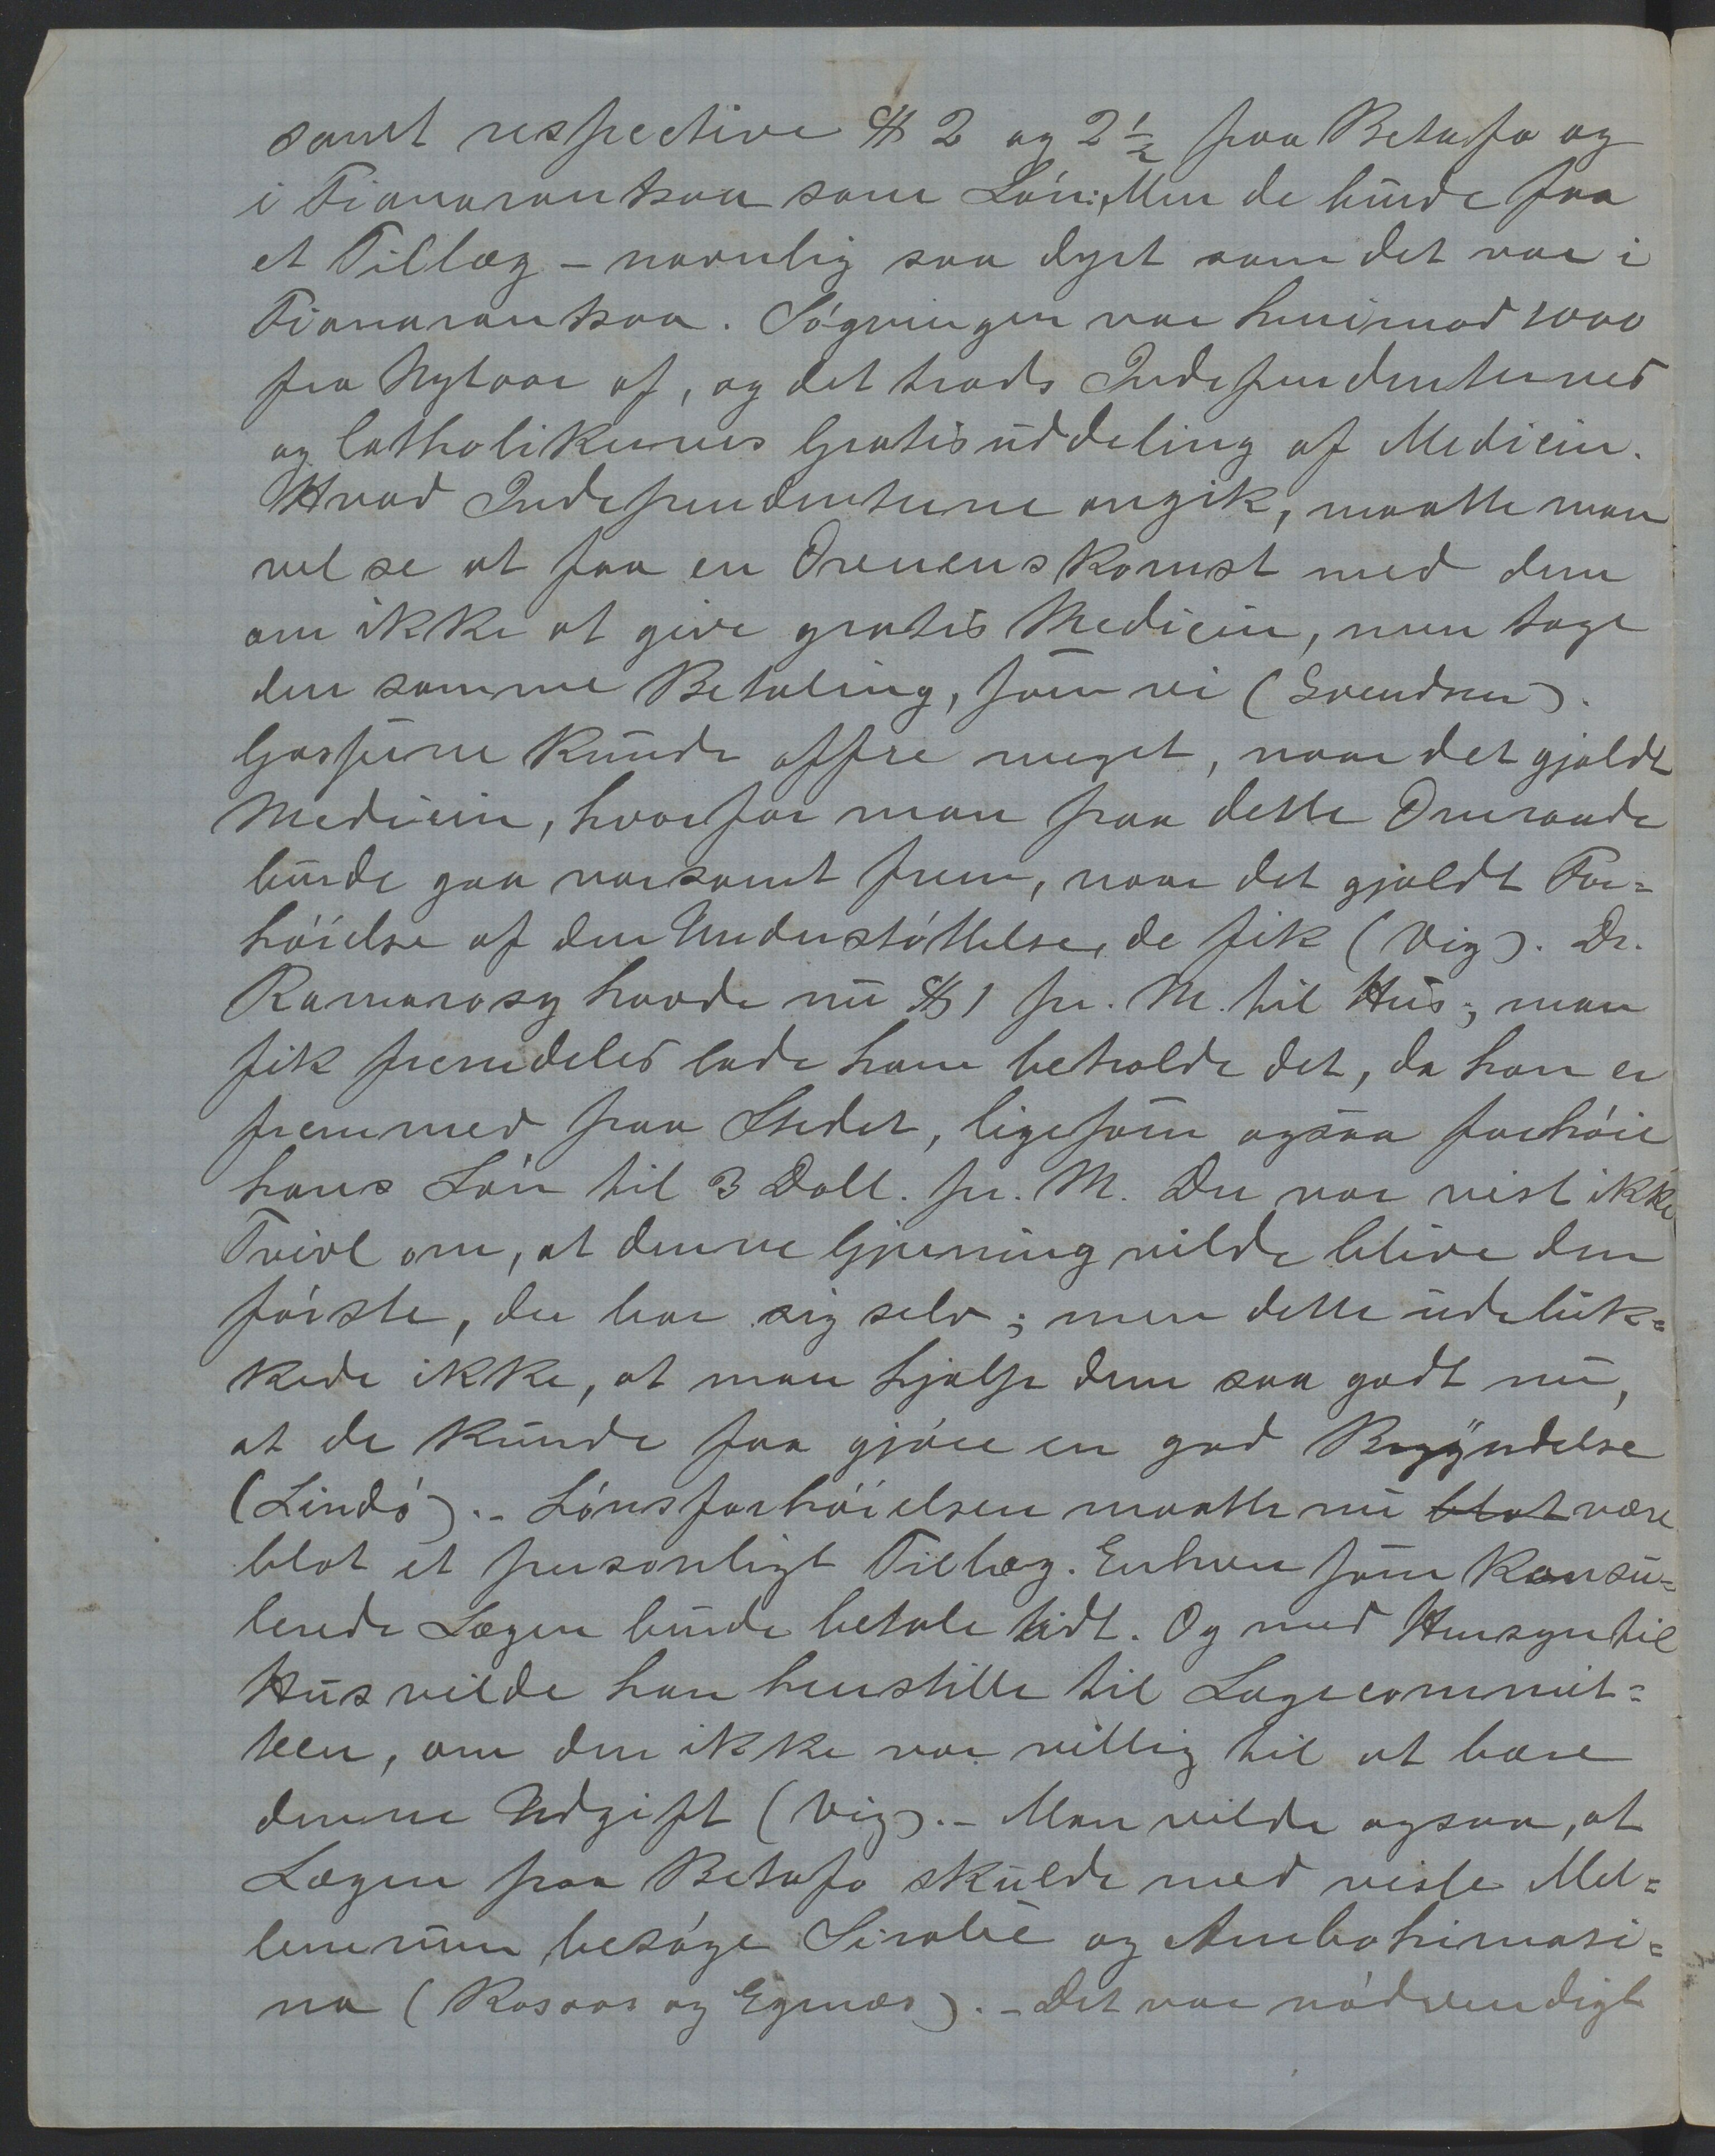 samt respective $ 2 og 2 1/2 paa Betafo og
i Fianarantsoa som Løn; Men de burde faa
et Tillæg – navnlig saa dyrt som det var i
Fianarantsoa. Søgningen var henimod 1000
fra Nytaar af, og det trods Independenternes
og Catholikernes Gratisuddeling af Medicin.
Hvad Independenterne angik, maatte man
vel se at faa en Overenskomst med dem
om ikke at give gratis Medicin, men tage
den samme Betaling, som vi (Svendsen).
Gasserne kunde offre meget, naar det gjaldt
Medicin, hvorfor man paa dette Omraade
burde gaa varsomt frem, naar det gjaldt For=
høielse af den Understøttelse, de fik (Vig). Dr.
Ramarosy havde nu $ 1 pr. M. til Hus; man
fik fremdeles lade ham beholde det, da han er
fremmed paa Stedet, ligesom ogsaa forhøie
hans Løn til 3 Doll. pr. M. Der var vist ikke
Tvivl om, at denne Gjerning vilde blive den
første, der bar sig selv; men dette udeluk=
kede ikke, at man hjalp dem saa godt nu,
at de kunde faa gjøre en god Begyndelse
(Lindø). – Lønsforhøielsen maatte nu blot være
blot et personligt Tillæg. Enhver som konsu=
lerede Lægen burde betale lidt. Og med Hensyn til
Hus vilde han henstille til Lægecommit=
teen, om den ikke var villig til at bære
denne Udgift (Vig). – Man vilde ogsaa, at
Lægen paa Betafo skulde med visse Mel=
lemrum besøge Sirabe og Ambohimasi=
na (Rosaas og Egenæs). – Det var nødvendigt